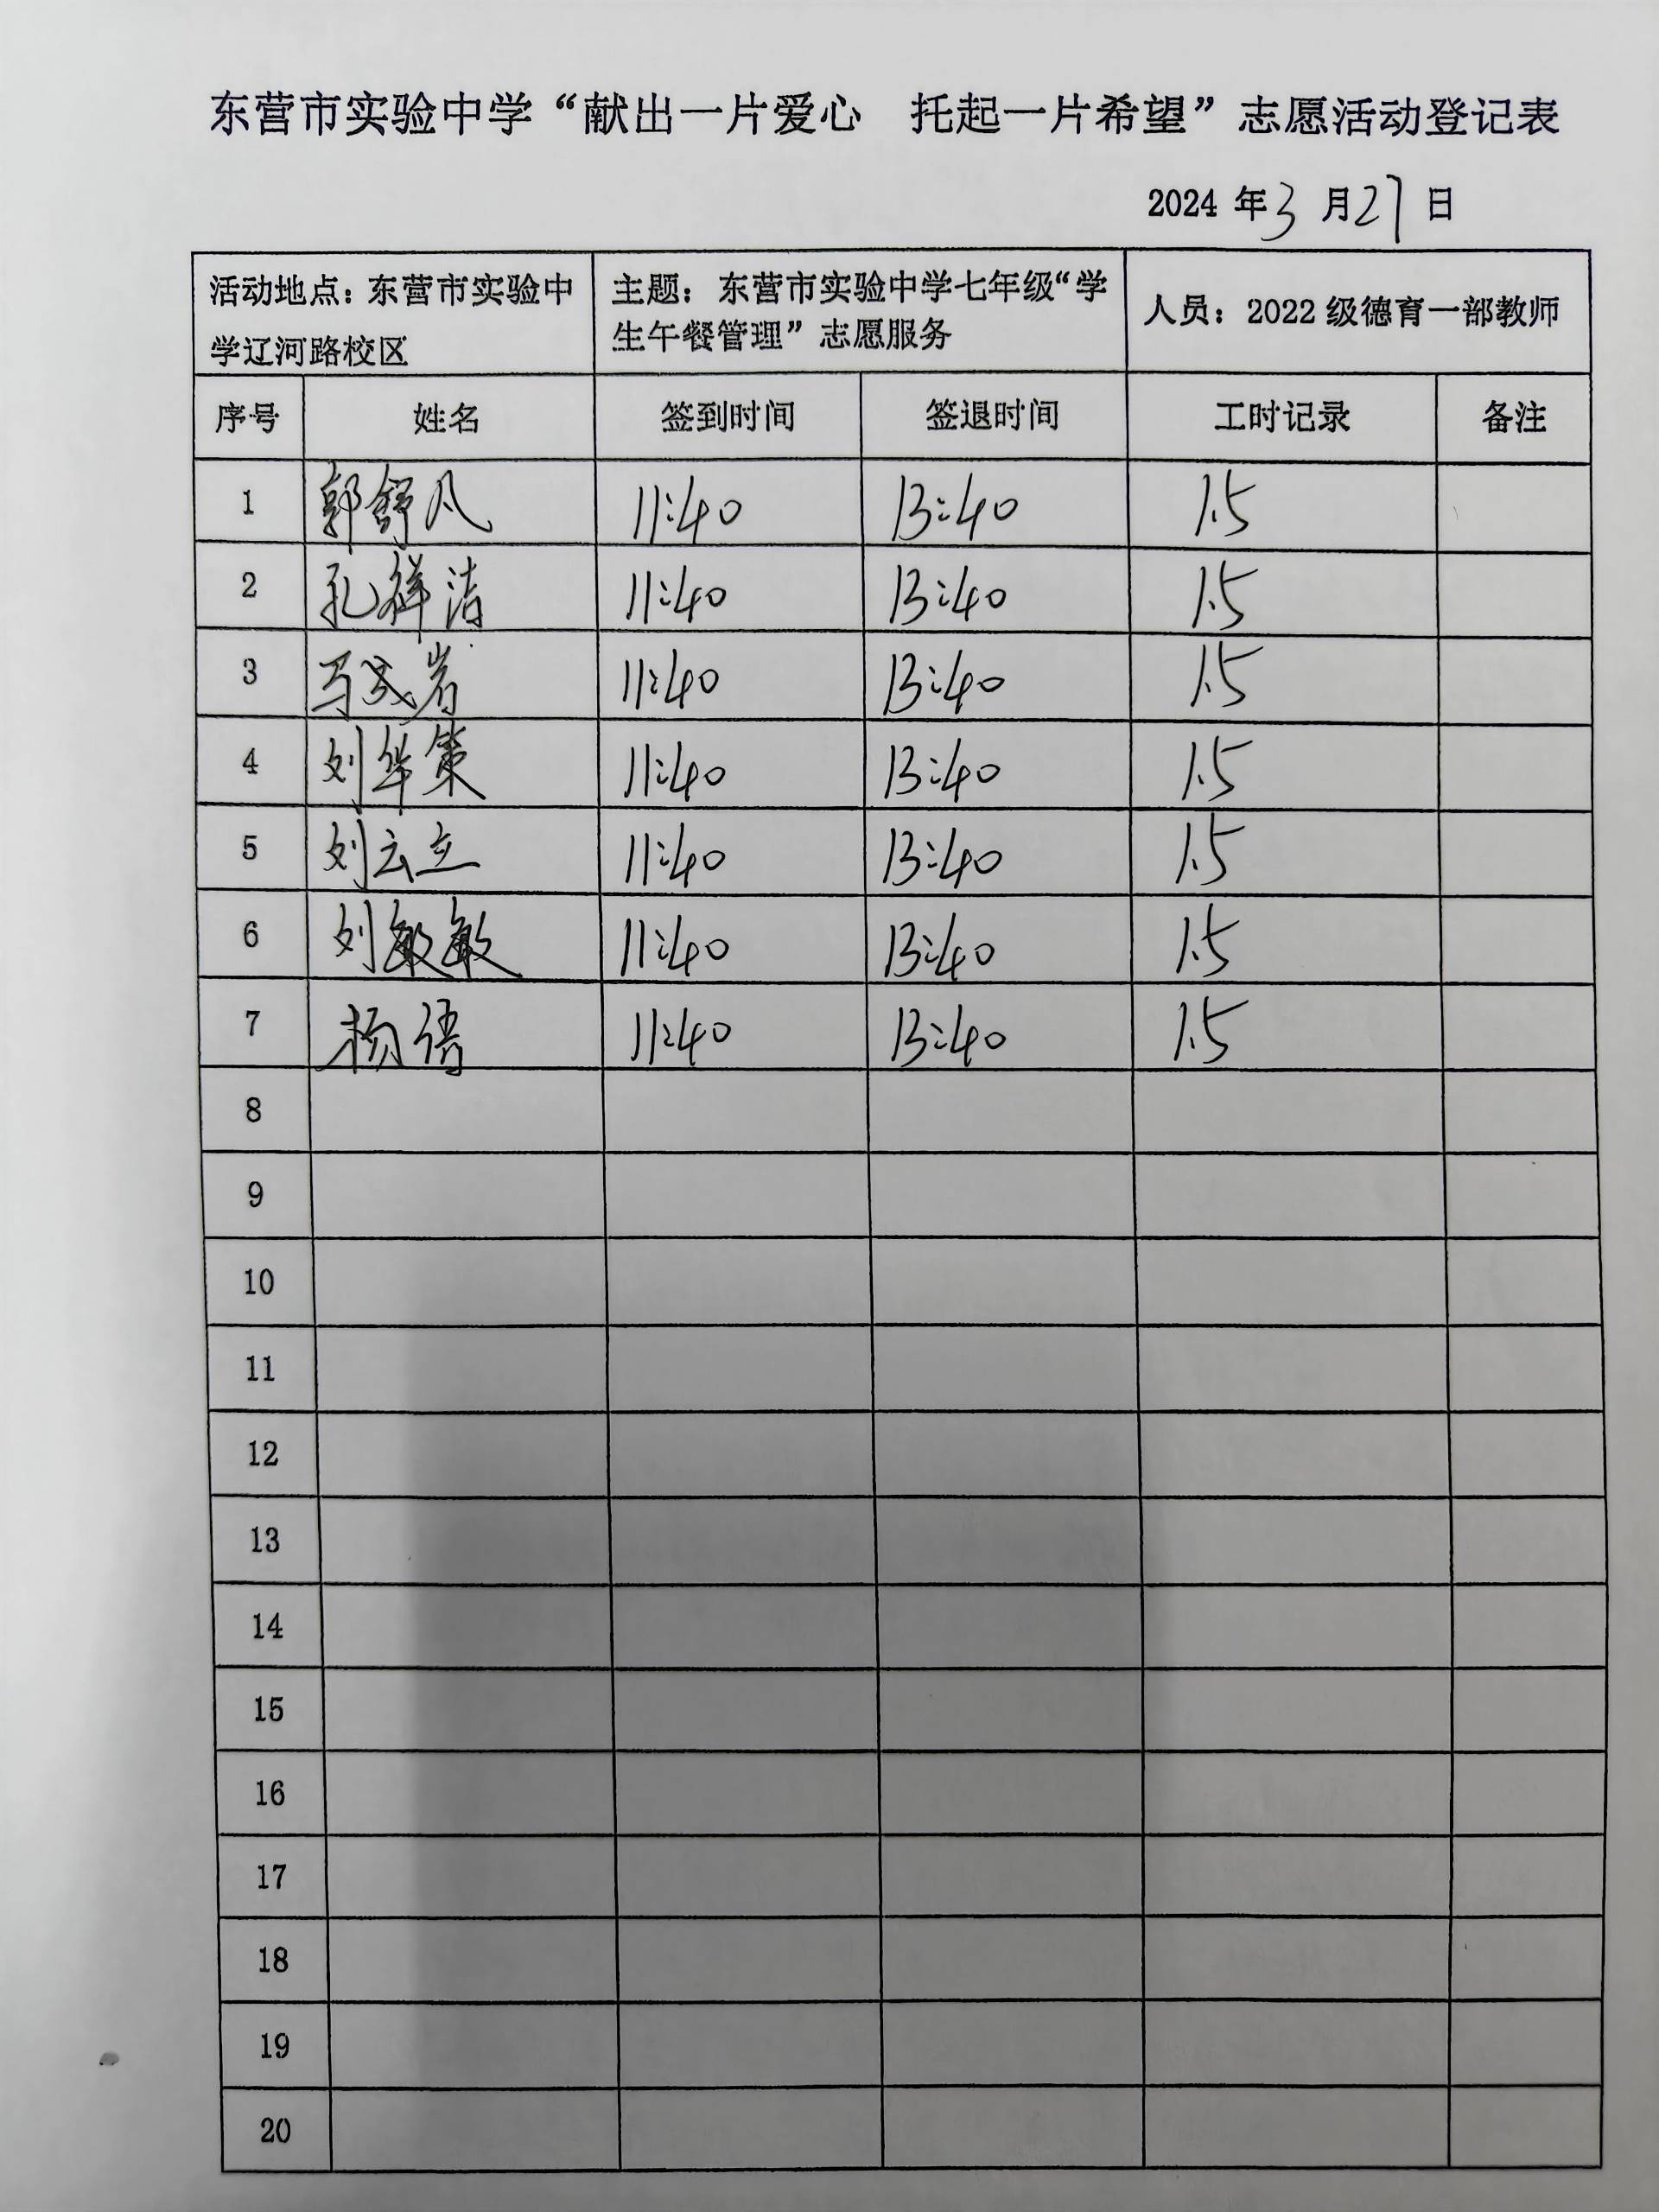 东营市实验中学“献出一片爱心 托起一片希望”志愿活动登记表
2024 年 3 月 27 日
活动地点：东营市实验中
学辽河路校区
主题：东营市实验中学七年级“学
生午餐管理”志愿服务
人员：2022 级德育一部教师
序号 姓名 签到时间 签退时间 工时记录 备注
1 郭舒凡 11:40 13:40 1.5
2 孔祥洁 11:40 13:40 1.5
3 马岩 11:40 13:40 1.5
4 刘华策 11:40 13:40 1.5
5 刘云立 11:40 13:40 1.5
6 刘敏敏 11:40 13:40 1.5
7 杨语 11:40 13:40 1.5
8
9
10
11
12
13
14
15
16
17
18
19
20